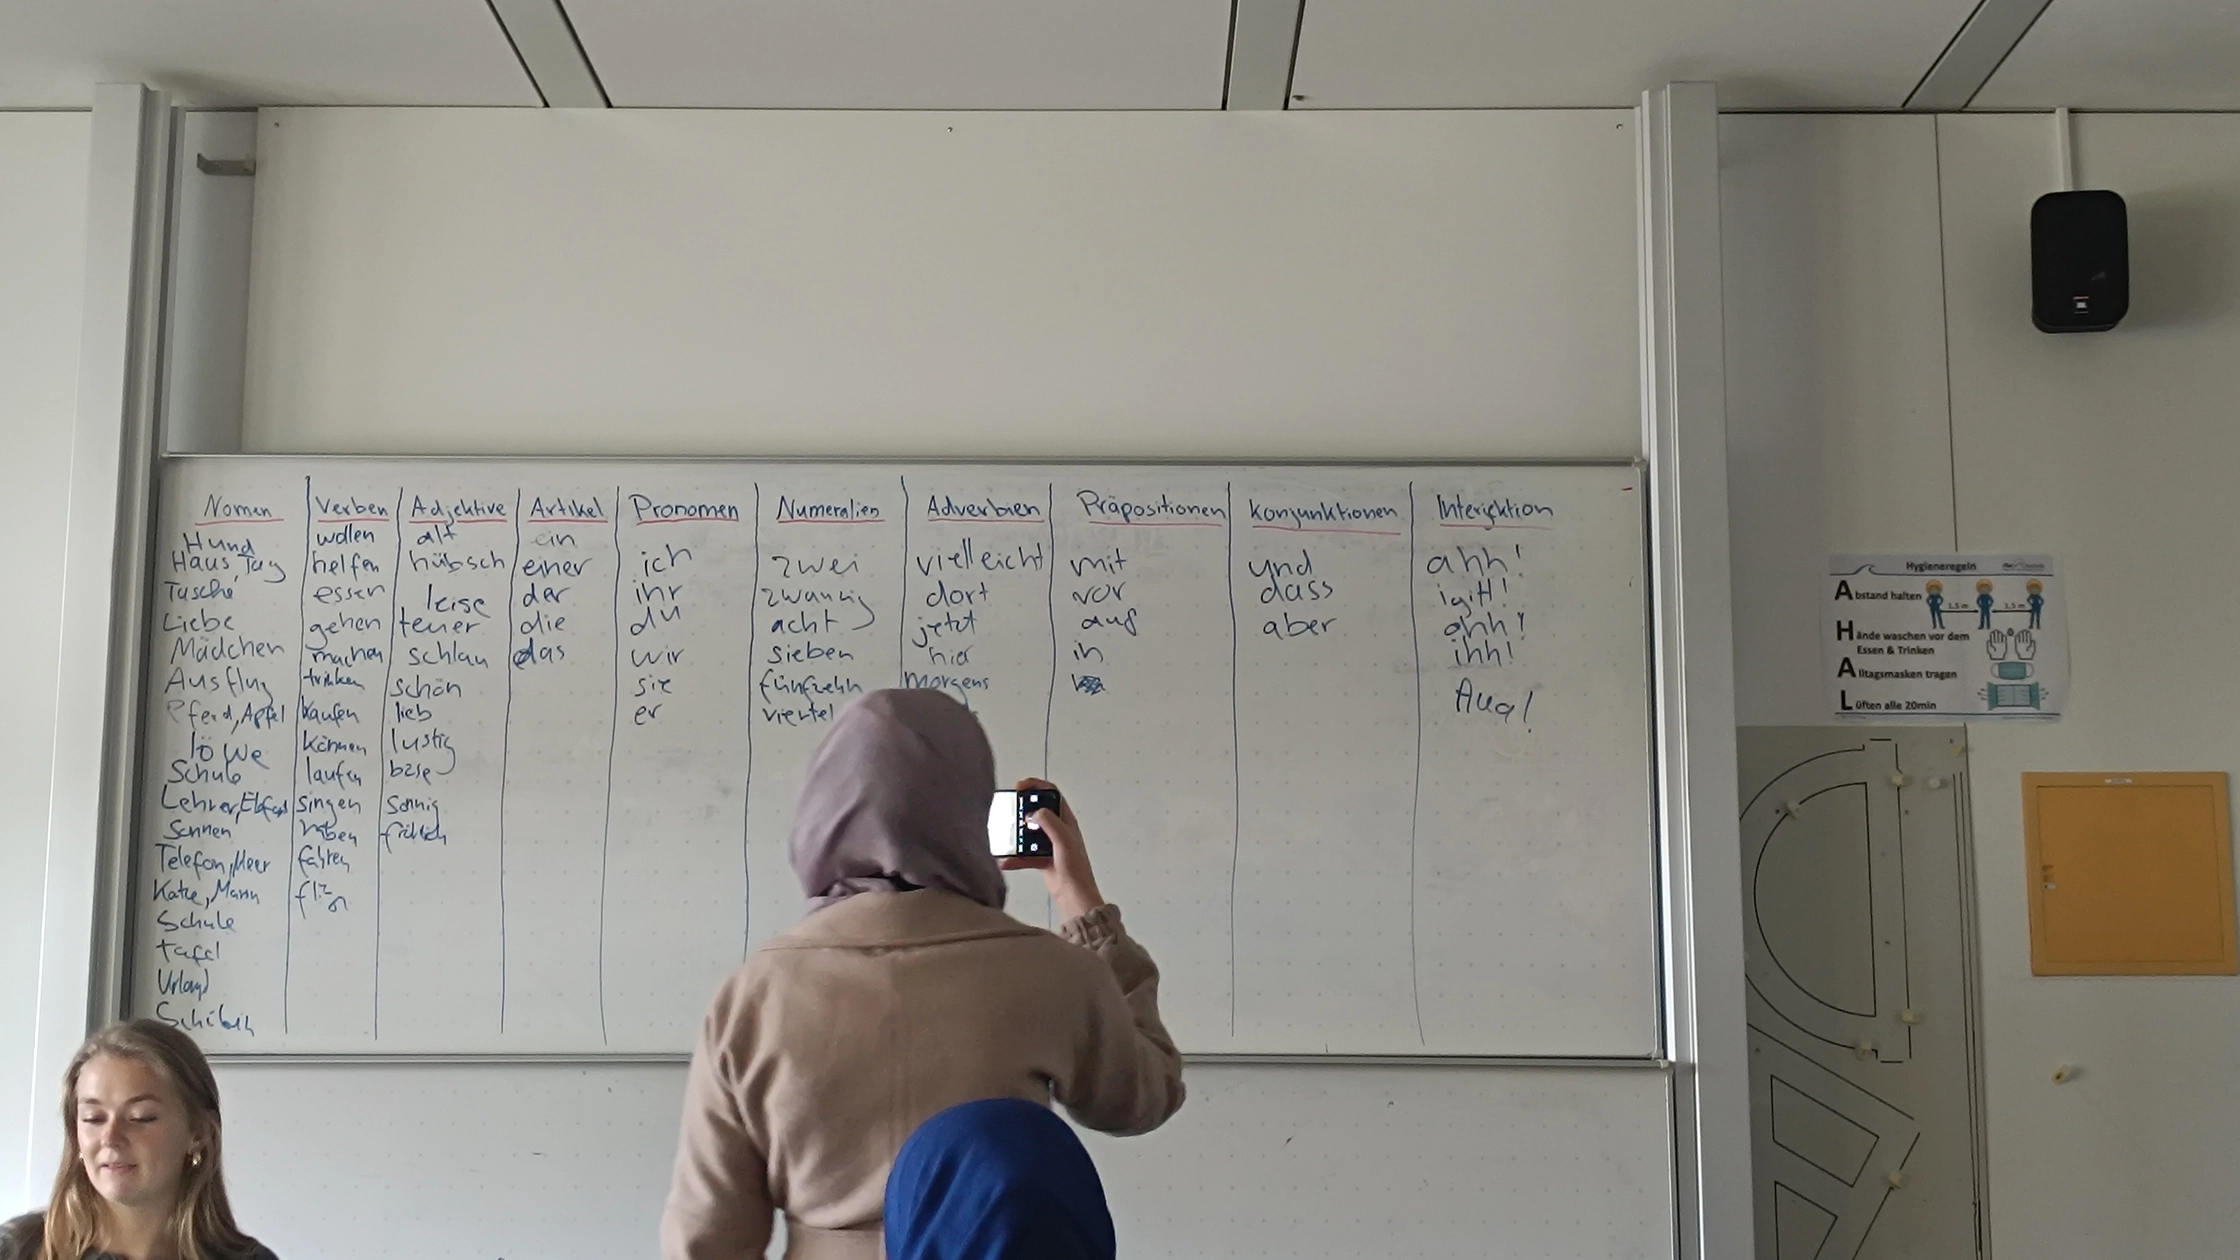 Nomen
Hund
Haus, Tag
Tasche
Liebe
Mädchen
Ausflug
Pferd, Apfel
löwe
Schule
Lehrer,
Sonnen
Telefon, Meer
Katze, Mann
Schule
tafel
Verben
wollen
helfen
essen
gehen
machen
trinken
kaufen
können
laufen
singen
haben
fahren
Adjektive
alt
hübsch
leise
teuer
schlau
schön
lieb
lustig
böse
sonnig
Artikel
ein
einer
der
die
das
Pronomen
ich
ihr
du
wir
sie
er
Numeralien
zwei
zwanzig
acht
sieben
fünfzehn
viertel
Adverbien
vielleicht
dort
jetzt
hier
morgens
Präpositionen
mit
vor
auf
in
Konjunktionen
und
dass
aber
Interjektion
ahh!
igitt!
ohh!
ihh!
Aua!
Hygieneregeln
Abstand halten
1,5 m 1,5 m
Hände waschen vor dem
Essen & Trinken
Alltagsmasken tragen
Lüften alle 20min